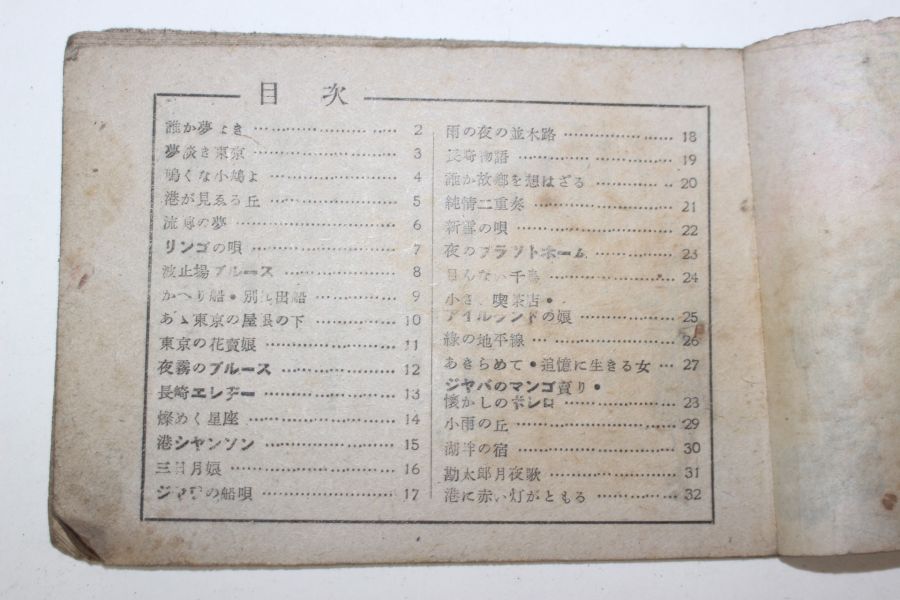 目次
誰か夢なき 2
夢淡き東京 3
啼くな小鳩よ 4
港が見ゑる丘 5
流 の夢 6
リンゴの唄 7
波止場ブルース 8
かへり船・別れ出船 9
あゝ東京の屋根の下 10
東京の花賣娘 11
夜霧のブルース 12
長崎エレヂー 13
燦めく星座 14
港シヤンソン 15
三日月娘 16
ジャワの船唄 17
雨の夜の並木路 18
長崎物語 19
誰か故郷を想はざる 20
純情二重奏 21
新雪の唄 22
夜のプラットホーム 23
目んない千鳥 24
小さい喫茶店・
アイルランドの娘 25
緣の地平線 26
あきらめて・追憶に生きる女 27
ジヤバのマンゴ賣り・
懐かしのボレロ 28
小雨の丘 29
湖畔の宿 30
勘太郎月夜歌 31
港に赤い灯がともる 32